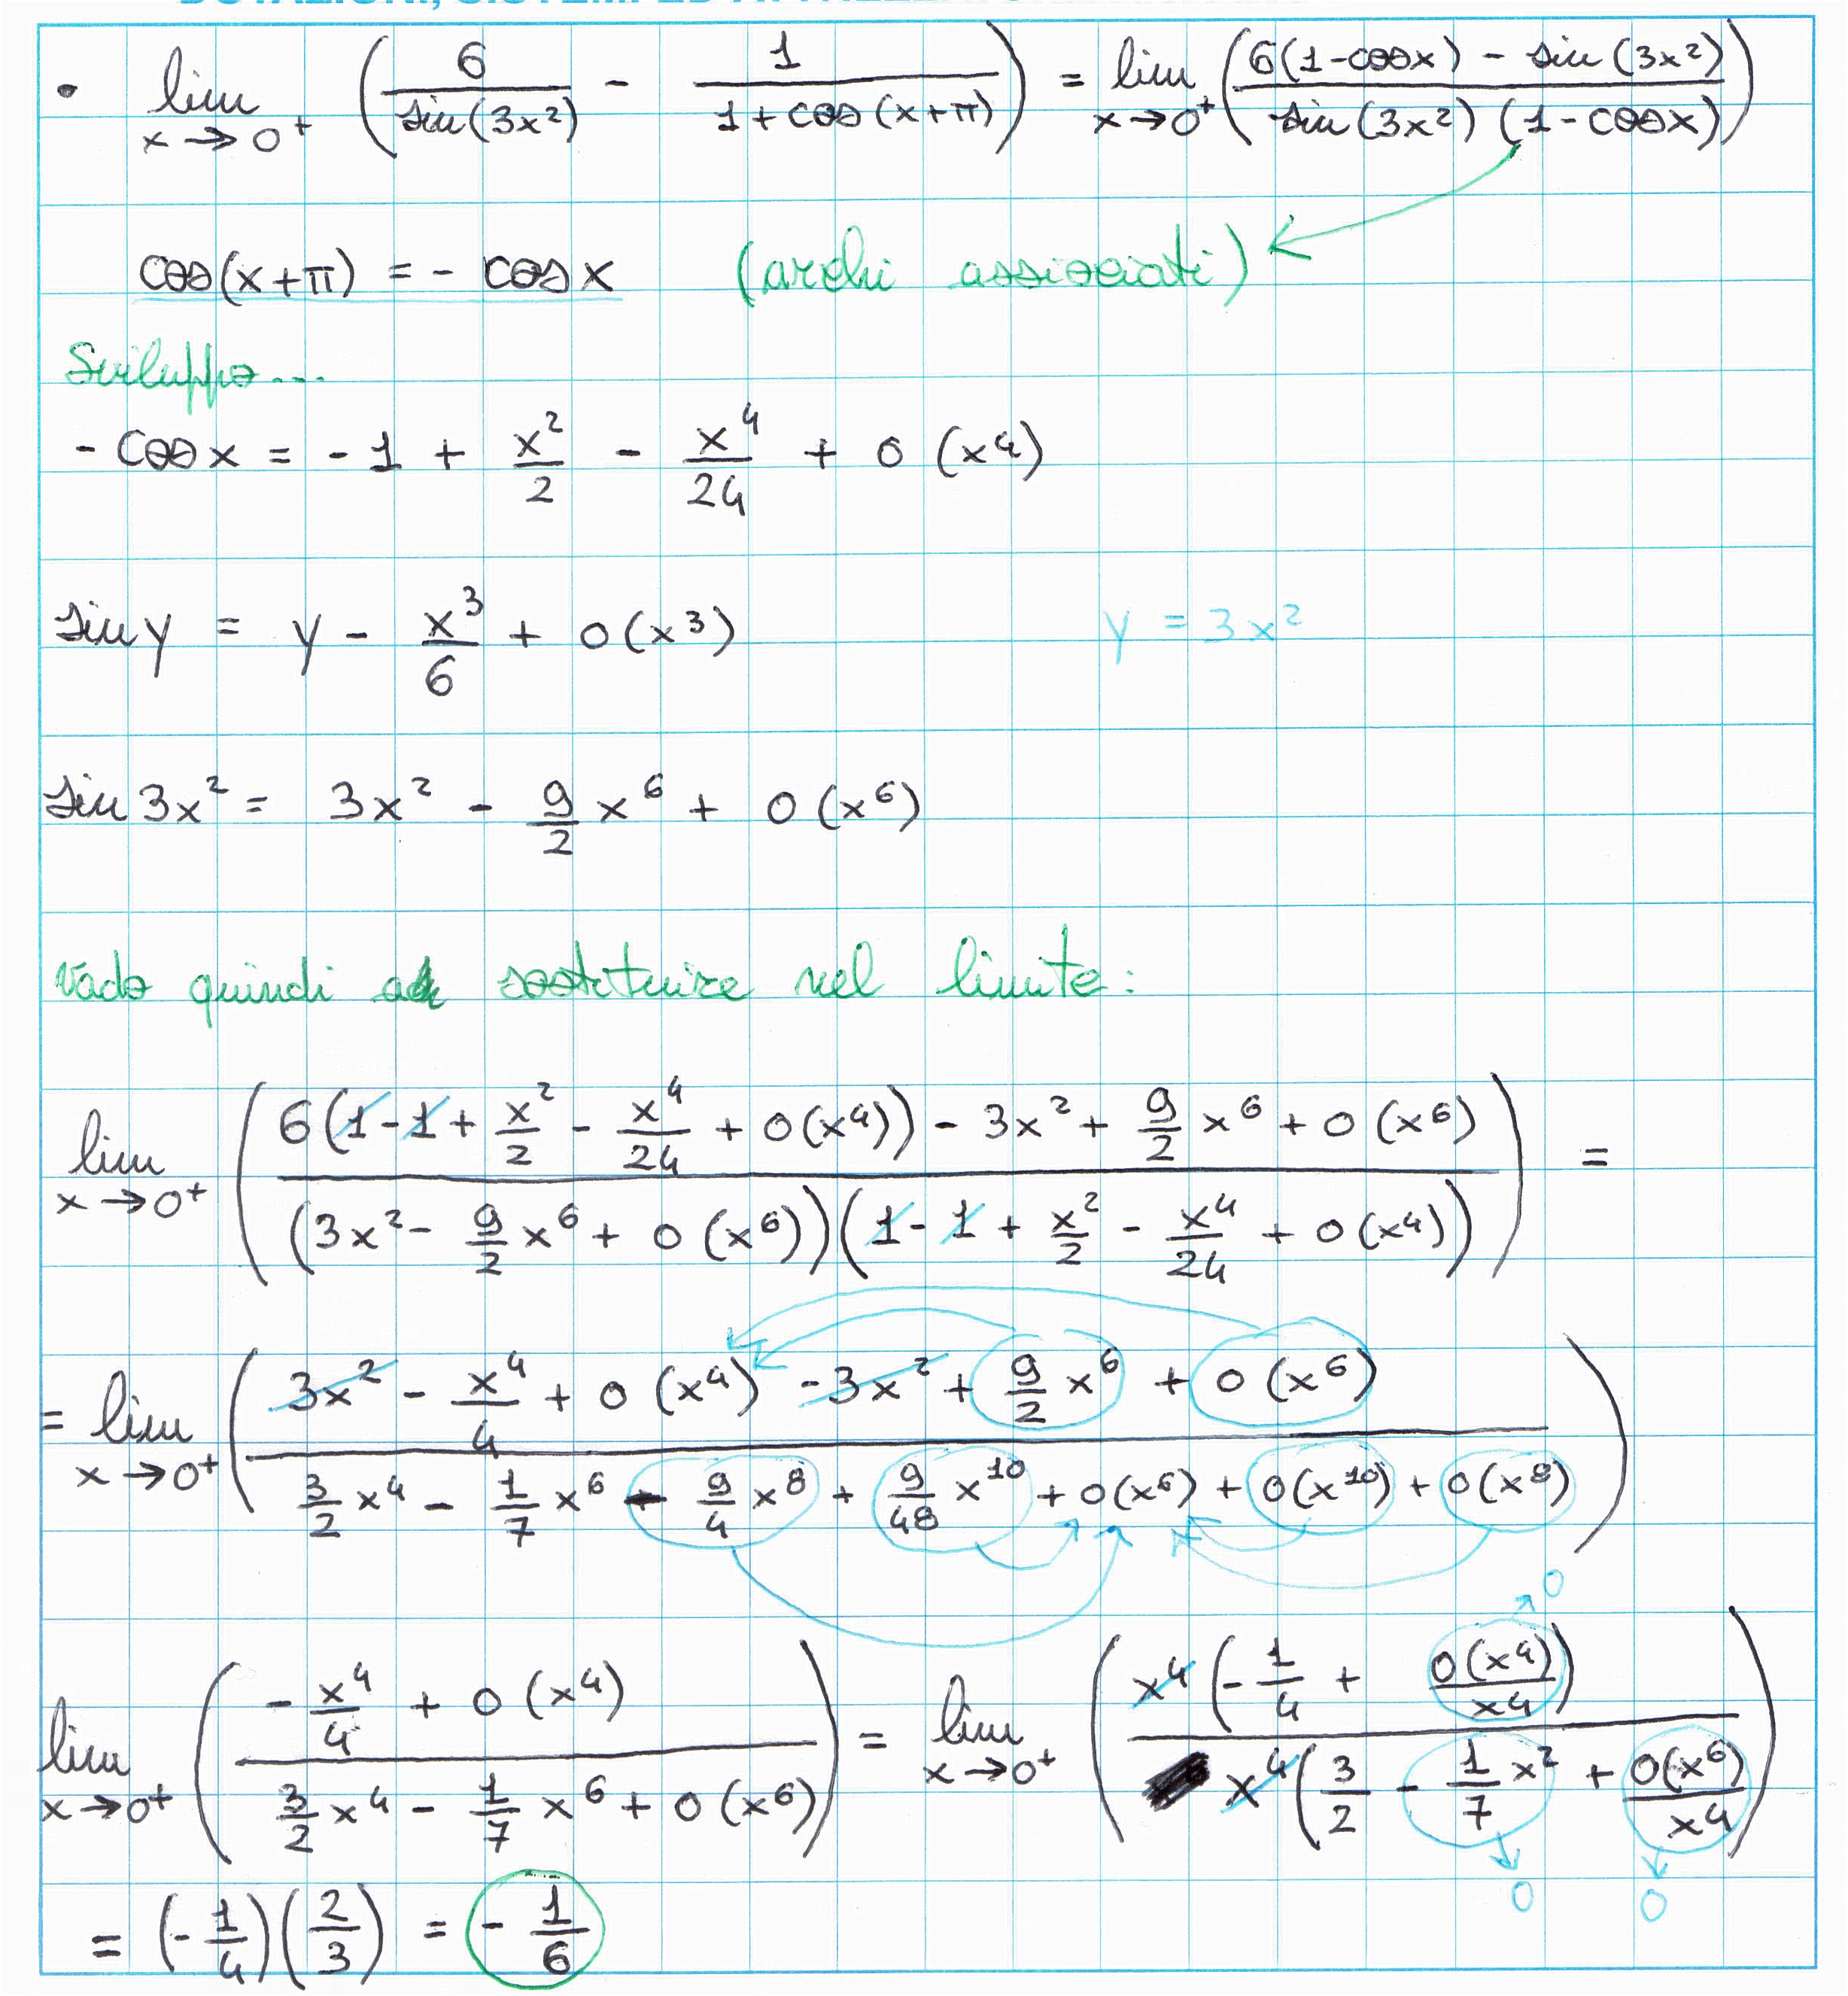 • lim x→0⁺ ( 6 / sin(3x²) - 1 / 1+cos(x+π) ) = lim x→0⁺ ( 6(1-cosx) - sin(3x²) / sin(3x²) (1-cosx) )
cos(x+π) = - cosx (archi assisociati)
Sviluppo...
- cosx = - 1 + x²/2 - x⁴/24 + o (x⁴)
sin y = y - x³/6 + o(x³) y = 3x²
sin 3x² = 3x² - 9/2 x⁶ + o (x⁶)
vado quindi a sostituire nel limite:
lim x→0⁺ ( 6(1-1+ x²/2 - x⁴/24 + o(x⁴)) - 3x² + 9/2 x⁶ + o (x⁶) / (3x² - 9/2 x⁶ + o (x⁶))(1-1 + x²/2 - x⁴/24 + o(x⁴)) ) =
= lim x→0⁺ ( 3x² - x⁴/4 + o (x⁴) - 3x² + 9/2 x⁶ + o (x⁶) / 3/2 x⁴ - 1/7 x⁶ - 9/4 x⁸ + 9/48 x¹⁰ + o(x⁶) + o(x¹⁰) + o(x⁸) )
lim x→0⁺ ( - x⁴/4 + o (x⁴) / 3/2 x⁴ - 1/7 x⁶ + o (x⁶) ) = lim x→0⁺ ( x⁴ (- 1/4 + o(x⁴)/x⁴) / x⁴ ( 3/2 - 1/7 x² + o(x⁶)/x⁴ ) ) 0 0 0
= (- 1/4)( 2/3 ) = - 1/6